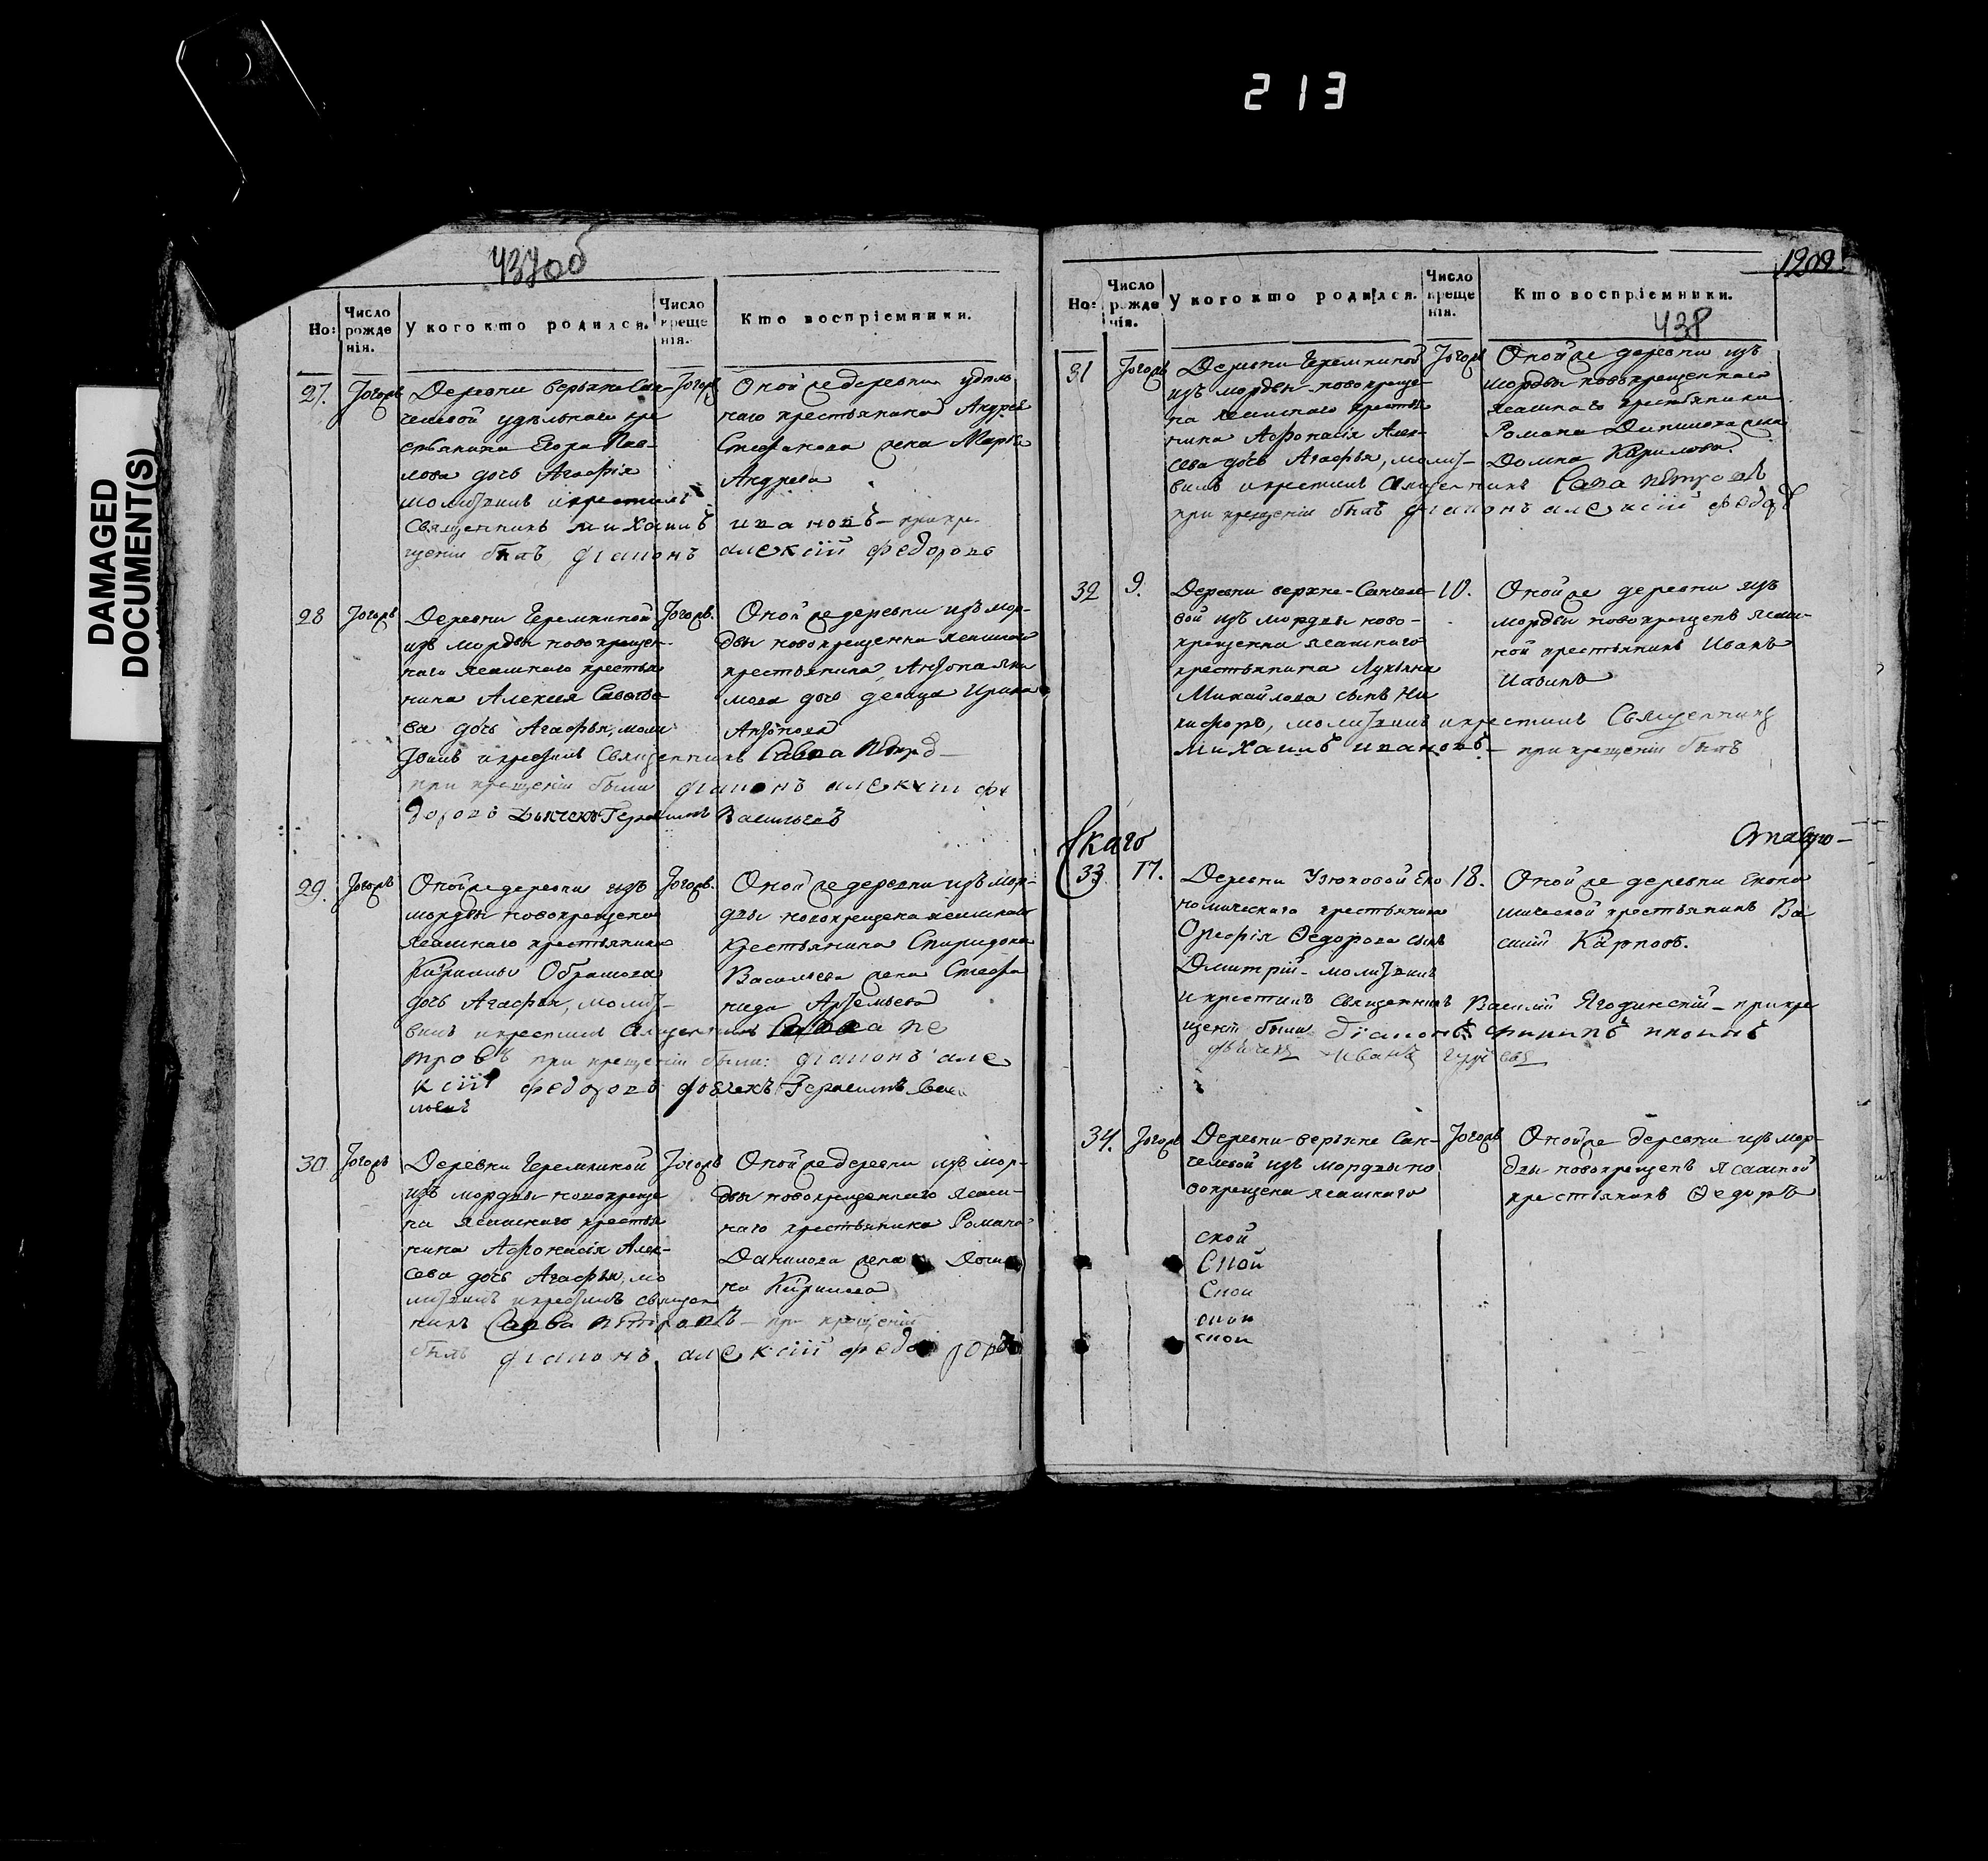 213
DAMAGED
DOCUMENT(S)
437об
Но:
Число рожде нія.
У кого кто родился.
Число креще нія.
Кто воспріемники.
27. Тогожъ
Деревни верьхне Сан-
челѣвой удѣльнаго кре
стьянина Егора Пав-
лова дочь Агафія
молитвилъ икрестилъ
Священникъ михаилъ ивановъ – при кре
щеніи былъ діаконъ алексій федоровъ
Тогожъ
Оной же деревни удѣль
наго крестьянина Андрея
Стефанова жена Марѳа
Андреева
28 Тогожъ
Деревни Черемкиной
изъ мордвы новокрещен-
наго ясашнаго крестья
нина Алексея Савельева
дочь Агафья, моли
твилъ икрестилъ Священникъ Савва Петровъ
при крещеніи были діаконъ алексій фе
доровъ Дьячекъ Герасимъ Васильевъ
Тогожъ.
Оной же деревни изъ мор-
двы новокрещенна ясашнаго
крестьянина, Антона
дочь девица Ирина
Антонова
29. Тогожъ
Оной же деревни изъ
мордвы новокрещена
ясашнаго крестьянина
Кирилы Обрамова
дочь Агафья, молит-
вилъ икрестилъ Священникъ Савва Пе
тровъ при крещеніи были: діаконъ але
ксій федоровъ дьячекъ Герасимъ Васи
льевъ
Тогожъ.
Оной же деревни изъ мор-
двы новокрещена ясашнаго
крестьянина Спиридона
Васильева жена Стефа
нида Артемьева
30 Тогожъ
Деревни Черемкиной
изъ мордвы новокреще
на ясашнаго крестья
нина Афонасія Алек-
сева дочь Агафья, мо
литвилъ икрестилъ священ
никъ Савва Петровъ – при крещеніи
былъ діаконъ алексій федоровъ
Тогожъ
Оной же деревни изъ мор-
двы новокрещеннаго ясаш-
наго крестьянина Романа
Данилова жена Дом
на Кирилова
1209
438
Но:
Число рожде нія.
У кого кто родился.
Число креще нія.
Кто воспріемники.
31 Тогожъ
Деревни Черемкиной
изъ мордвы новокреще-
на ясашнаго крестья
нина Афонасія Алек-
сева дочь Агафья, молит-
вилъ икрестилъ Священникъ Савва Петровъ
при крещеніи былъ діаконъ алексій федоровъ
Тогожъ
Оной же деревни изъ
мордвы новокрещеннаго
ясашнаго крестьянина
Романа Данилова жена
Домна Кирилова.
32 9.
Деревни верхне-Санчеле-
вой изъ мордвы ново-
крещенна ясашнаго
крестьянина Лукьяна
Михайлова сынъ Ни
кифоръ, молитвилъ икрестилъ Священникъ
михаилъ ивановъ – при крещеніи былъ
10.
Оной же деревни изъ
мордвы новокрещенъ ясаш-
ной крестьянинъ Иванъ
Савинъ
Ставро-
скаго
33 17.
Деревни Узюковой Эко
номическаго крестьянина
Орефія Ѳедорова сынъ
Дмитрій – молитвилъ
икрестилъ священникъ Василій Ягодинскій – при кре
щеніи были діаконъ филипъ
дьячекъ Иванъ
18.
Оной же деревни Эконо
мической крестьянинъ Ва
силій Карповъ.
34. Тогожъ
Деревни верьхне Сан-
челевой изъ мордвы но
вокрещена ясашнаго
Тогожъ
Оной же деревни изъ мор-
двы новокрещенъ ясашной
крестьянинъ Ѳедоръ
ской